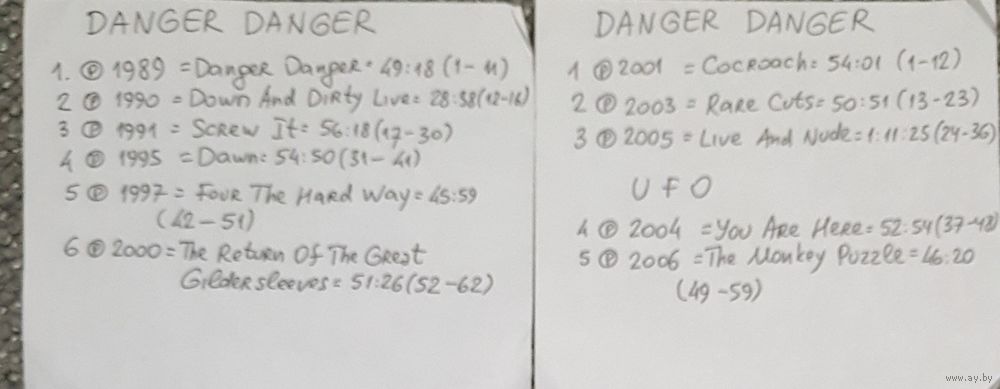 DANGER DANGER
1. Ⓟ 1989 = Danger Danger = 49:18 (1-11)
2 Ⓟ 1990 = Down And Dirty Live = 28:38 (12-16)
3 Ⓟ 1991 = Screw It = 56:18 (17-30)
4 Ⓟ 1995 = Dawn = 54:50 (31-41)
5 Ⓟ 1997 = Four The Hard Way = 45:59
(42-51)
6 Ⓟ 2000 = The Return Of The Great
Gildersleeves = 51:26 (52-62)
DANGER DANGER
1 Ⓟ 2001 = Cocroach = 54:01 (1-12)
2 Ⓟ 2003 = Rare Cuts = 50:51 (13-23)
3 Ⓟ 2005 = Live And Nude = 1:11:25 (24-36)
UFO
4 Ⓟ 2004 = You Are Here = 52:54 (37-48)
5 Ⓟ 2006 = The Monkey Puzzle = 46:20
(49-59)
www.ay.by